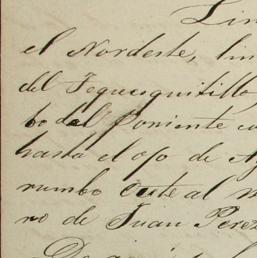 Lin
el Nordeste, lin
del Tequesquitillo
bo del Poniente co
hasta el ojo de Ag
rumbo Oeste al m
ro de Juan Perez